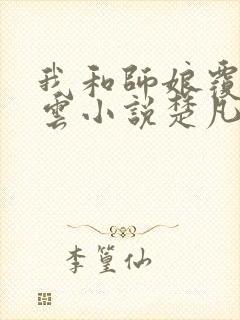 我和師娘覆
雲小說楚凡
李篁仙